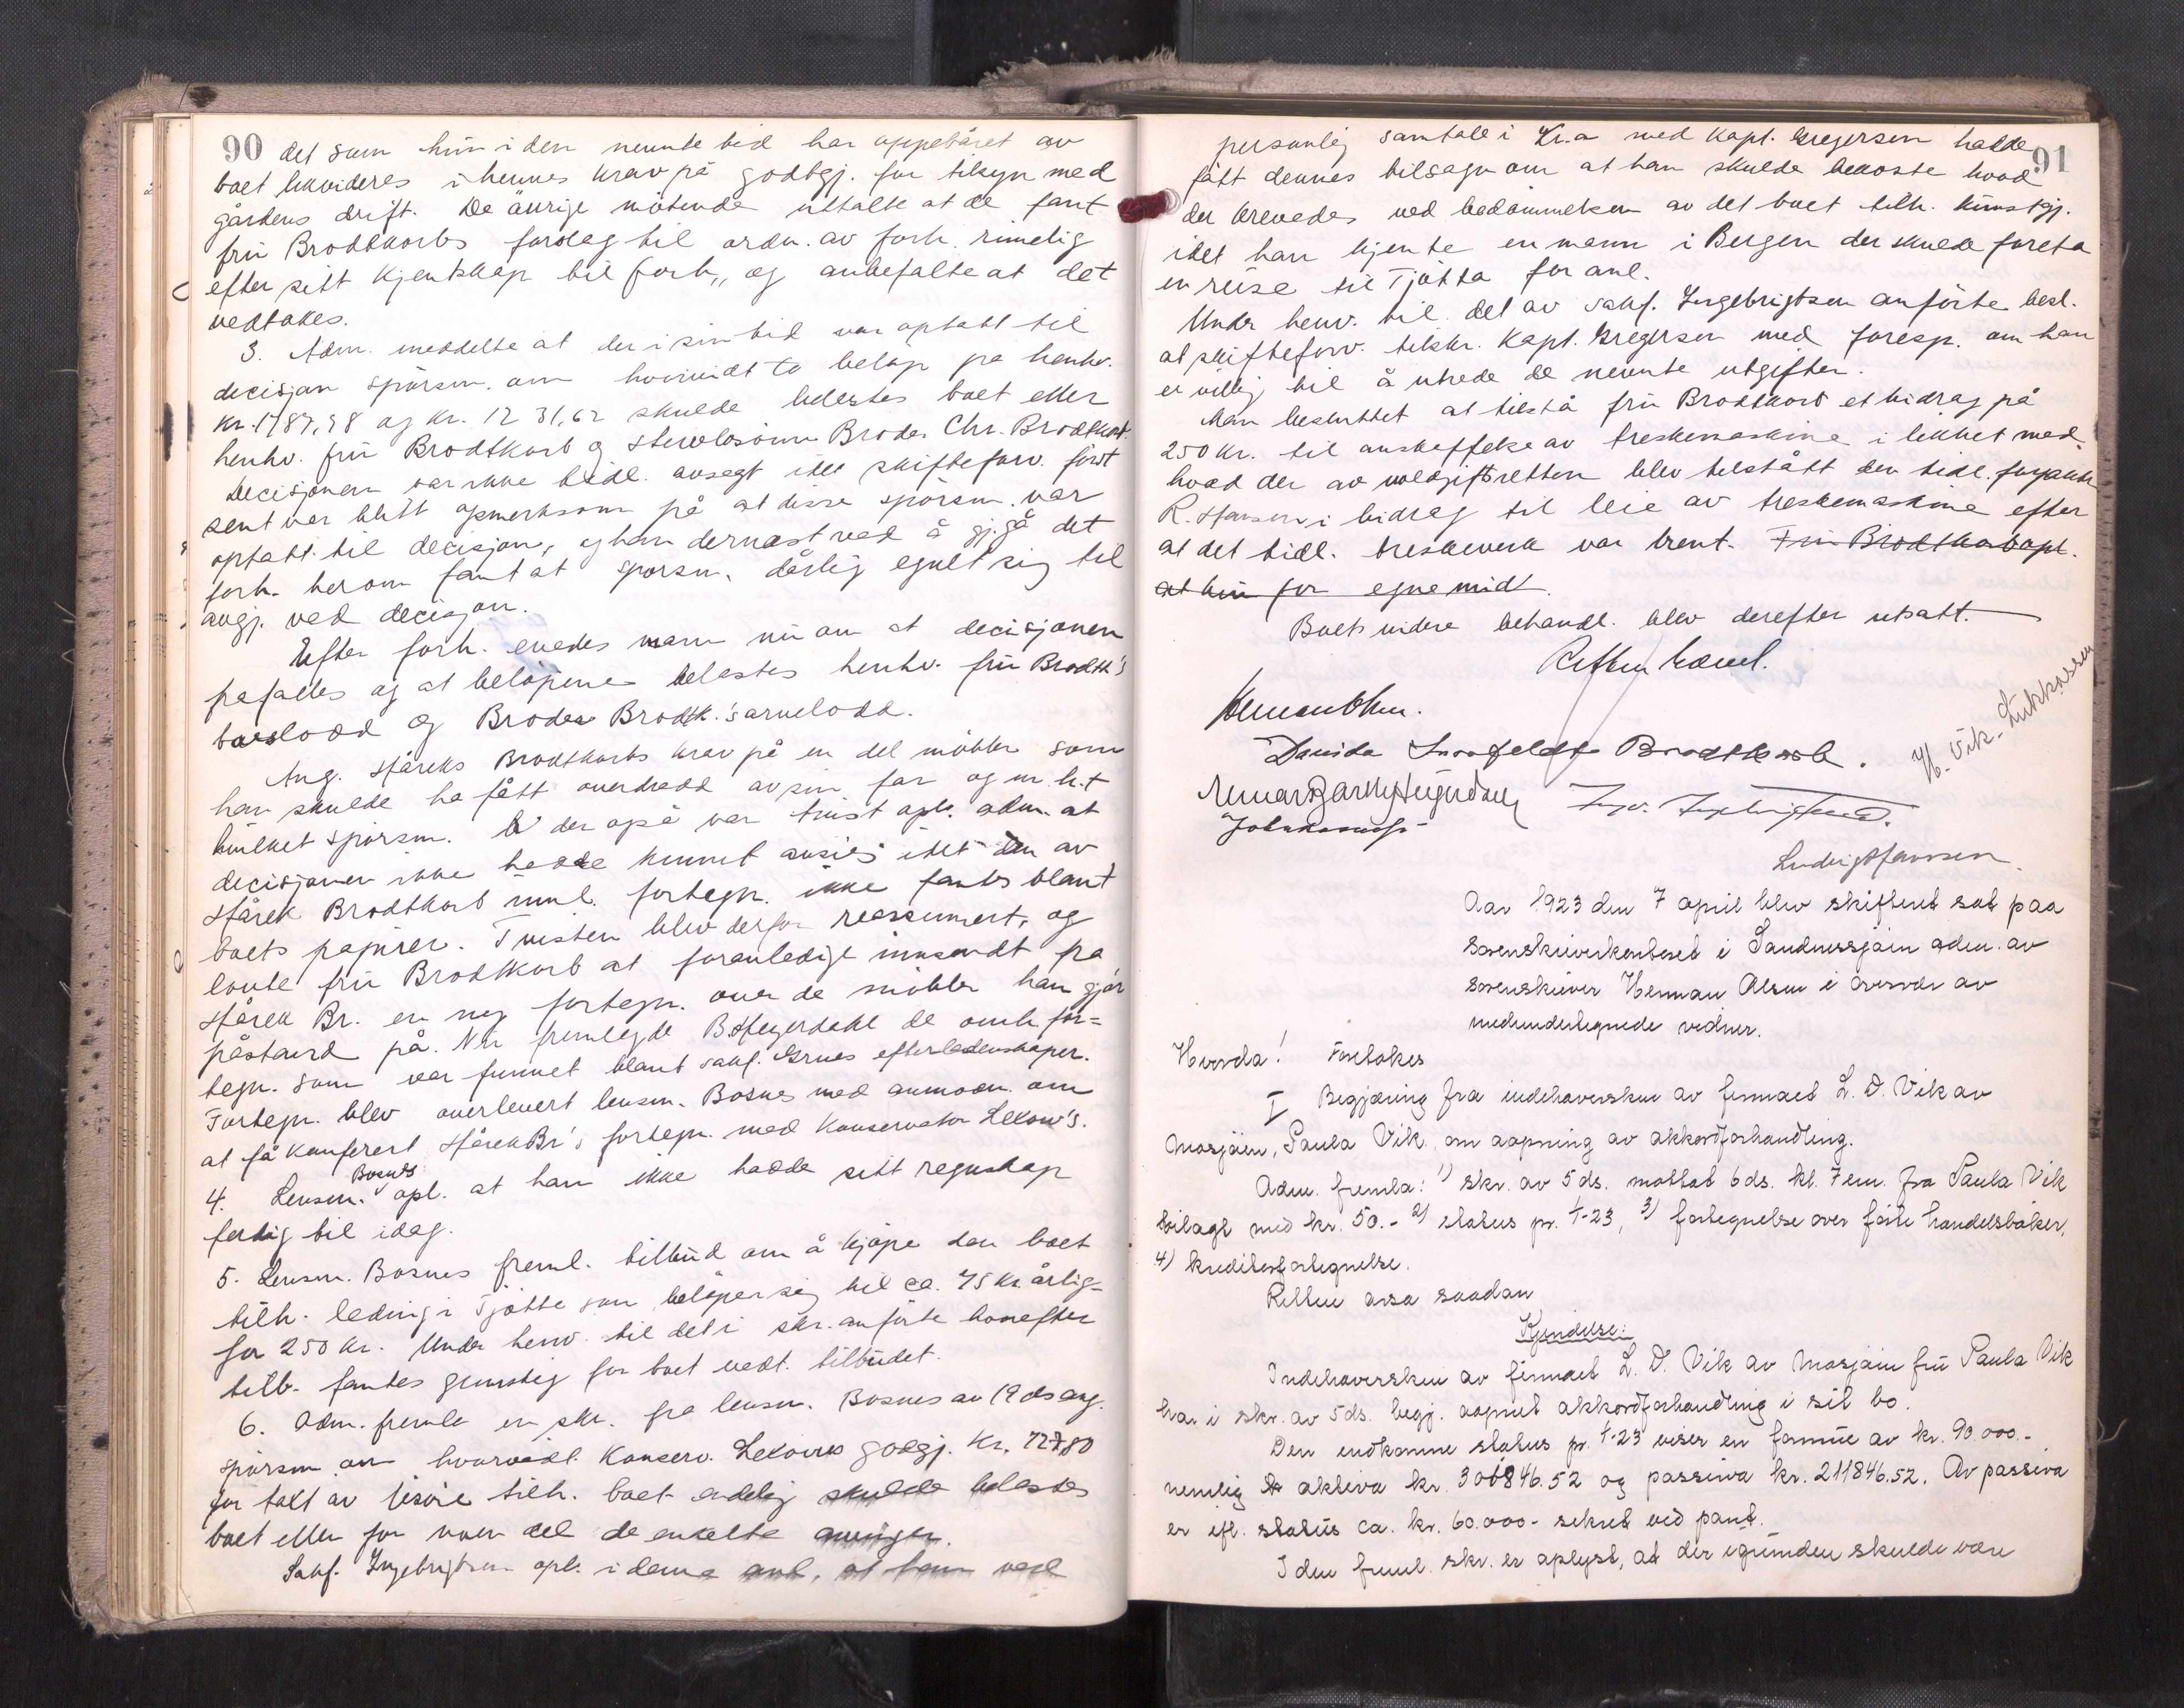 90 det som hun i den nevnte tid har oppebåret av
boet likvideres i hennes krav på godtgj. for tilsyn med
gårdens drift. De øvrige mötende uttalte at de fant
frü Brodtkorbs forslag til ordn. av forh. rimelig
efter sitt kjentskap til forh., og anbefalte at det
vedtokes.
3. Adm. meddelte at der i sin tid var optatt til
decisjon spörsm. om hvorvidt to belöp på henhv.
kr. 1787,98 og kr. 1231,62 skulde belastes boet eller
henhv. frü Brodtkorb og stervbosönn Broder Chr. Brodtkorb.
Decisjonen var ikke tidl. avsagt idet skifteforv. först
sent var blitt opmerksom på at disse spörsm. var
optatt til decisjon, og han dernæst ved å gj.gå det
forh. herom fant at spörsm. dårlig egnet sig til
avgj. ved decisjon.
Efter forh. enedes man nü om at decisjonen
frafalles og at belöpene belastes henhv. frü Brodtk's
boslodd og Broder Brodtk.'s arvelodd.
Ang. Håreks Brodtkorbs krav på en del möbler som
han skulde ha fått overdradd av sin far og m.h.t
hvilket spörsm. der også var tvist opl. adm. at
decisjonen ikke hadde kunnet avsies idet den av
Hårek Brodtkorb innl. fortegn. ikke fantes blant
boets papirer. Tvisten blev derfor reassumert, og
lovte frü Brodtkorb at foranledige innsendt fra
Hårek Br. en ny fortegn. over de möbler han gjör
påstand på. Nü fremlegde B. Hegerdahl de omh. for=
tegn. som var funnet blant sakf. Grues efterladenskaper.
Fortegn. blev overlevert lensm. Bosnes med anmodn. om
at få konferert Hårek Br's fortegn. med konservator Lexow's.
4. Lensm. Bosnes opl. at han ikke hadde sitt regnskap
ferdig til idag.
5. Lensm. Bosnes freml. tilbud om å kjöpe den boet
tilh. leding i Tjötta som belöper sig til ca. 75 kr årlig=
for 250 kr. Under henv. til det i skr. anförte hvorefter
tilb. fantes gunstig for boet vedt. tilbüdet.
6. Adm. fremla en skr. fra lensm. Bosnes av 19 ds ang.
spörsm. om hvorvidt konserv. Lexows godgj. kr. 727,80
for takt av lösöre tilh. boet endelig skulde belastes
boet eller for noen del de enkelte arvinger.
Sakf. Ingebrigtsen opl. i denne anl. at han ved
91
personlig samtale i Kr.a med kapt. Gregersen hadde
fått dennes tilsagn om at han skulde bekoste hvad
der krevedes ved bedömmelsen av det boet tilh. kunstgj.
idet han kjente en mann i Bergen der skulde foreta
en reise til Tjötta for anl.
Under henv. til det av sakf. Ingebrigtsen anförte besl.
at skifteforv. tilskr. kapt. Gregersen med foresp. om han
er villig til å utrede de nevnte utgifter.
Man besluttet at tilstå frü Brodtkorb et bidrag på
250 kr. til anskaffelse av treskemaskine i likhet med
hvad der av voldgiftsretten blev tilstått den tidl. forpakter
R. Hansen i bidrag til leie av treskemaskine efter
at det tidl. treskeverk var brent. Frü Brodtkorb opl.
at hun for egne midl.
Boets videre behandl. blev derefter utsatt.
Retten hævet.
Herman Olsen.
Davida Brodtkorb.
H. Vik-Lukkassen
Ingv. Ingebrigtsen.
Ludvig Hanssen
Aar 1923 den 7 april blev skifteret sat paa
sorenskriverkontoret i Sandnessjöen adm. av
sorenskriver Herman Olsen i overvær av
medundertegnede vidner.
Hvorda! Foretokes
I Begjæring fra indehaversken av firmaet L. D. Vik av
Mosjöen, Paula Vik om aapning av akkordforhandling.
Adm. fremla: 1) skr. av 5 ds. mottat 6 ds. kl. 7 em. fra Paula Vik
bilagt med kr. 50.- 2) status pr. 1/1-23, 3) fortegnelse over förte handelsböker,
4) kreditorfortegnelse.
Retten avsa saadan
Kjendelse:
Indehaversken av firmaet L. D. Vik av Mosjöen frü Paula Vik
har i skr. av 5 ds. begj. aapnet akkordforhandling i sit bo.
Den indkomne status pr. 1/1-23 viser en formüe av kr. 90.000.-
nemlig aktiva kr. 301846.52 og passiva kr. 211846.52. Av passiva
er efl. status ca. kr. 60.000- sikret ved pant.
I den freml. skr. er oplyst, at der i grunden skulde være